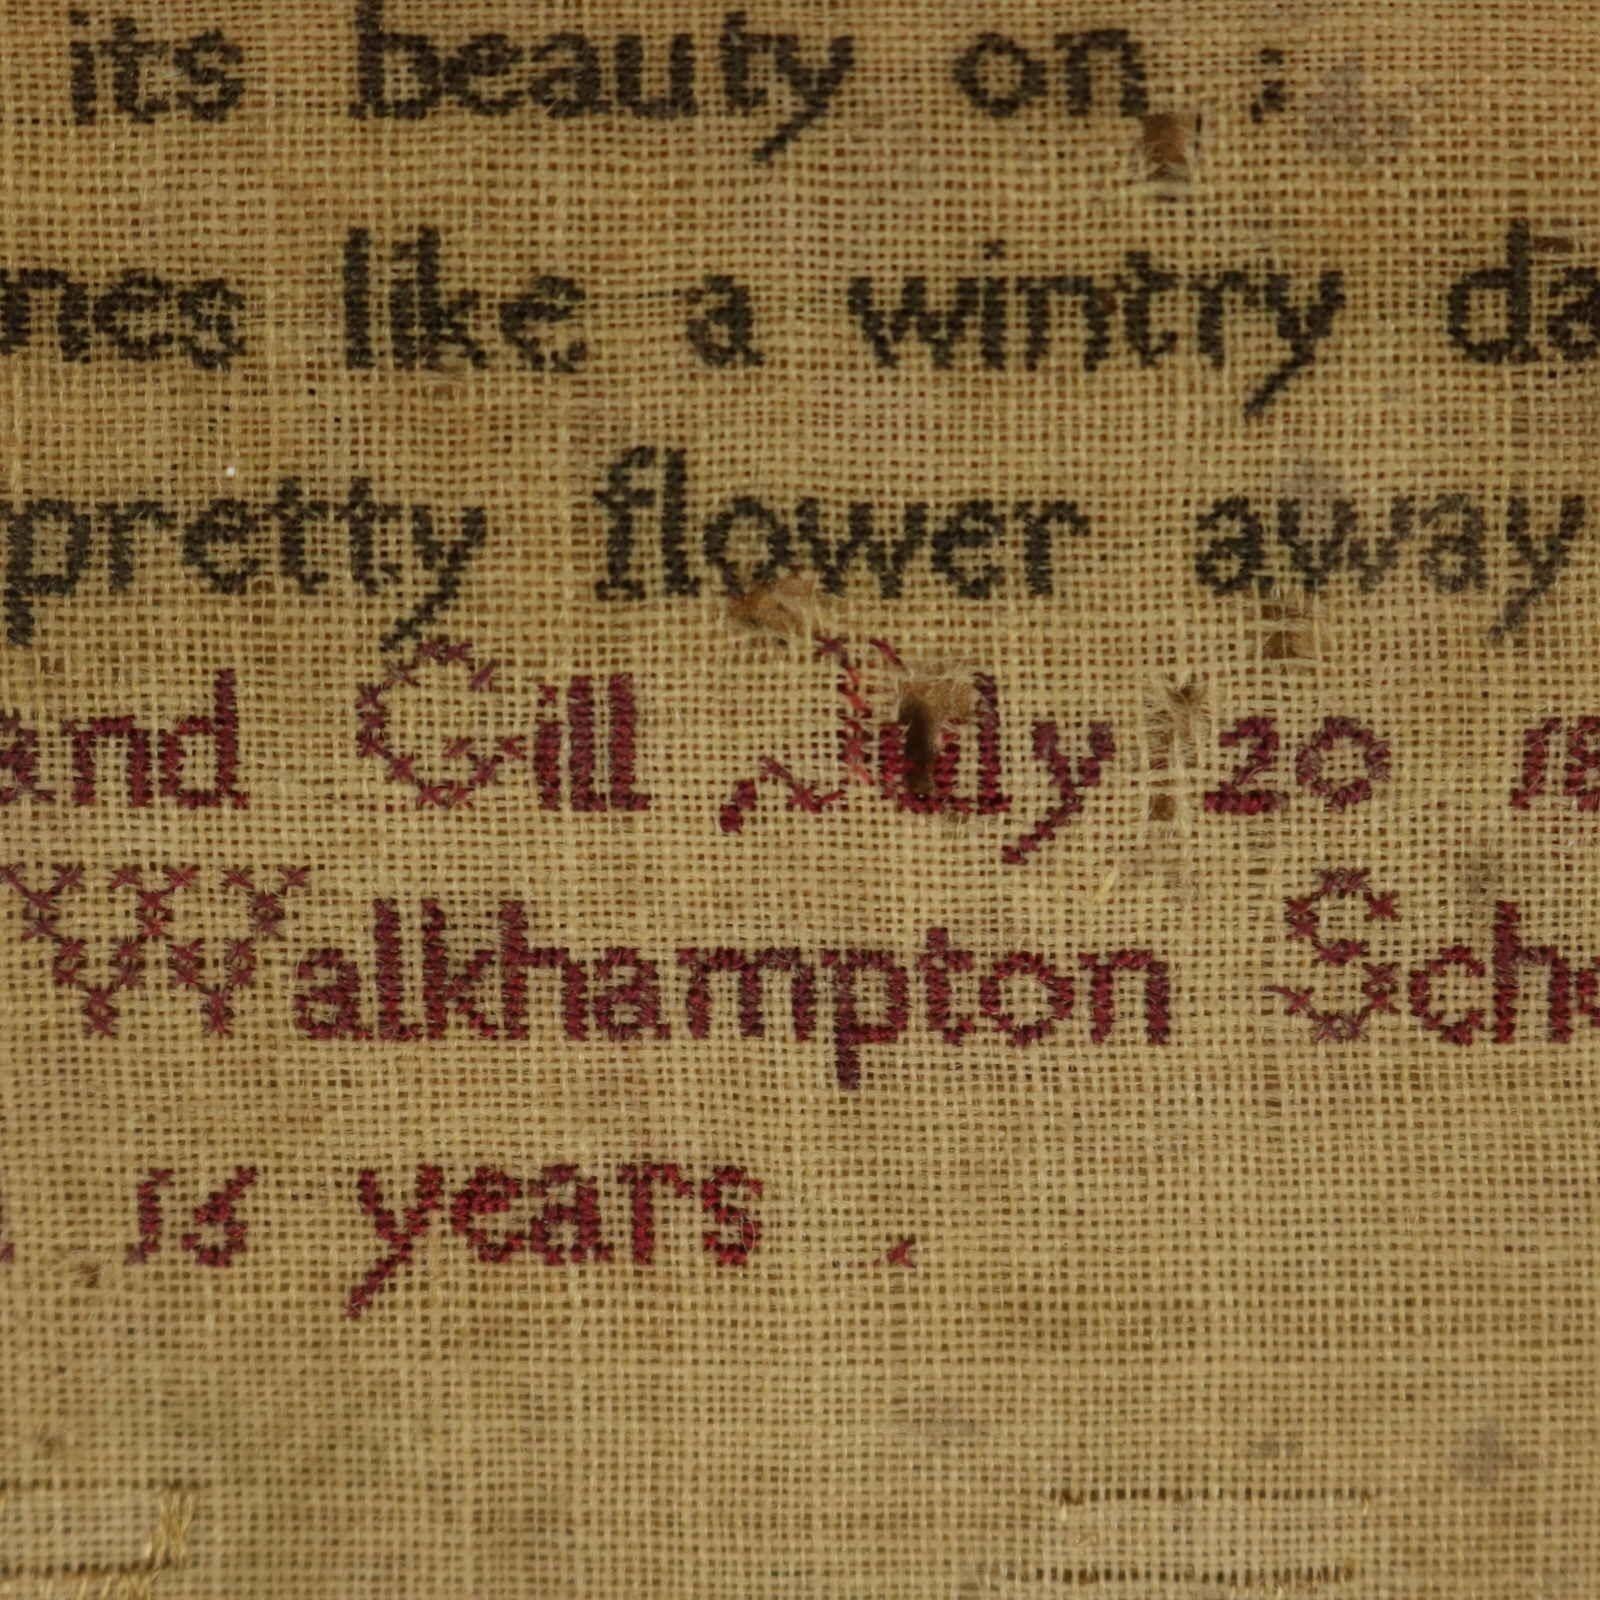 its beauty on :
nes like a wintry da
pretty flower away
and Gill July 20 18
Walkhampton Scho
15 years .